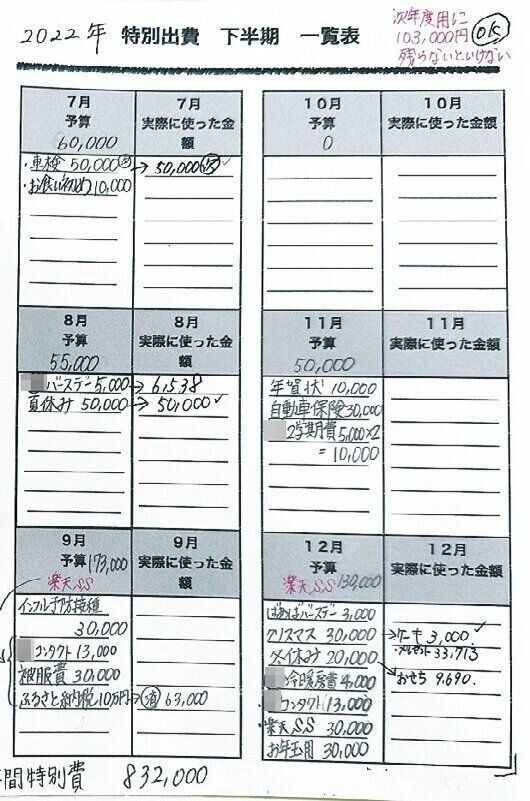 2022年 特別出費 下半期 一覧表
次年度用に
103,000円
残らないといけない
OK
7月
予算
60,000
7月
実際に使った金
額
・車検 50,000 → 50,000 ✓
・お食い初め 10,000
10月
予算
0
10月
実際に使った金額
8月
予算
55,000
8月
実際に使った金
額
バースデー 5,000 → 6,538
夏休み 50,000 → 50,000 ✓
11月
予算
50,000
11月
実際に使った金
額
年賀状 10,000
自動車保険 30,000
2学期費 5,000×2
= 10,000
9月
予算 173,000
楽天SS
9月
実際に使った金
額
インフル予防接種
30,000
コンタクト 13,000
被服費 30,000
ふるさと納税 10万円 → 63,000
12月
予算
楽天SS 130,000
12月
実際に使った金
額
ばぁばバースデー 3,000
クリスマス 30,000 → ケーキ 3,000 ✓
・プレゼント 33,713
冬休み 20,000
冷暖房費 4,000
おせち 9,690.
コンタクト 13,000
・楽天SS 30,000
お年玉用 30,000
間特別費 832,000